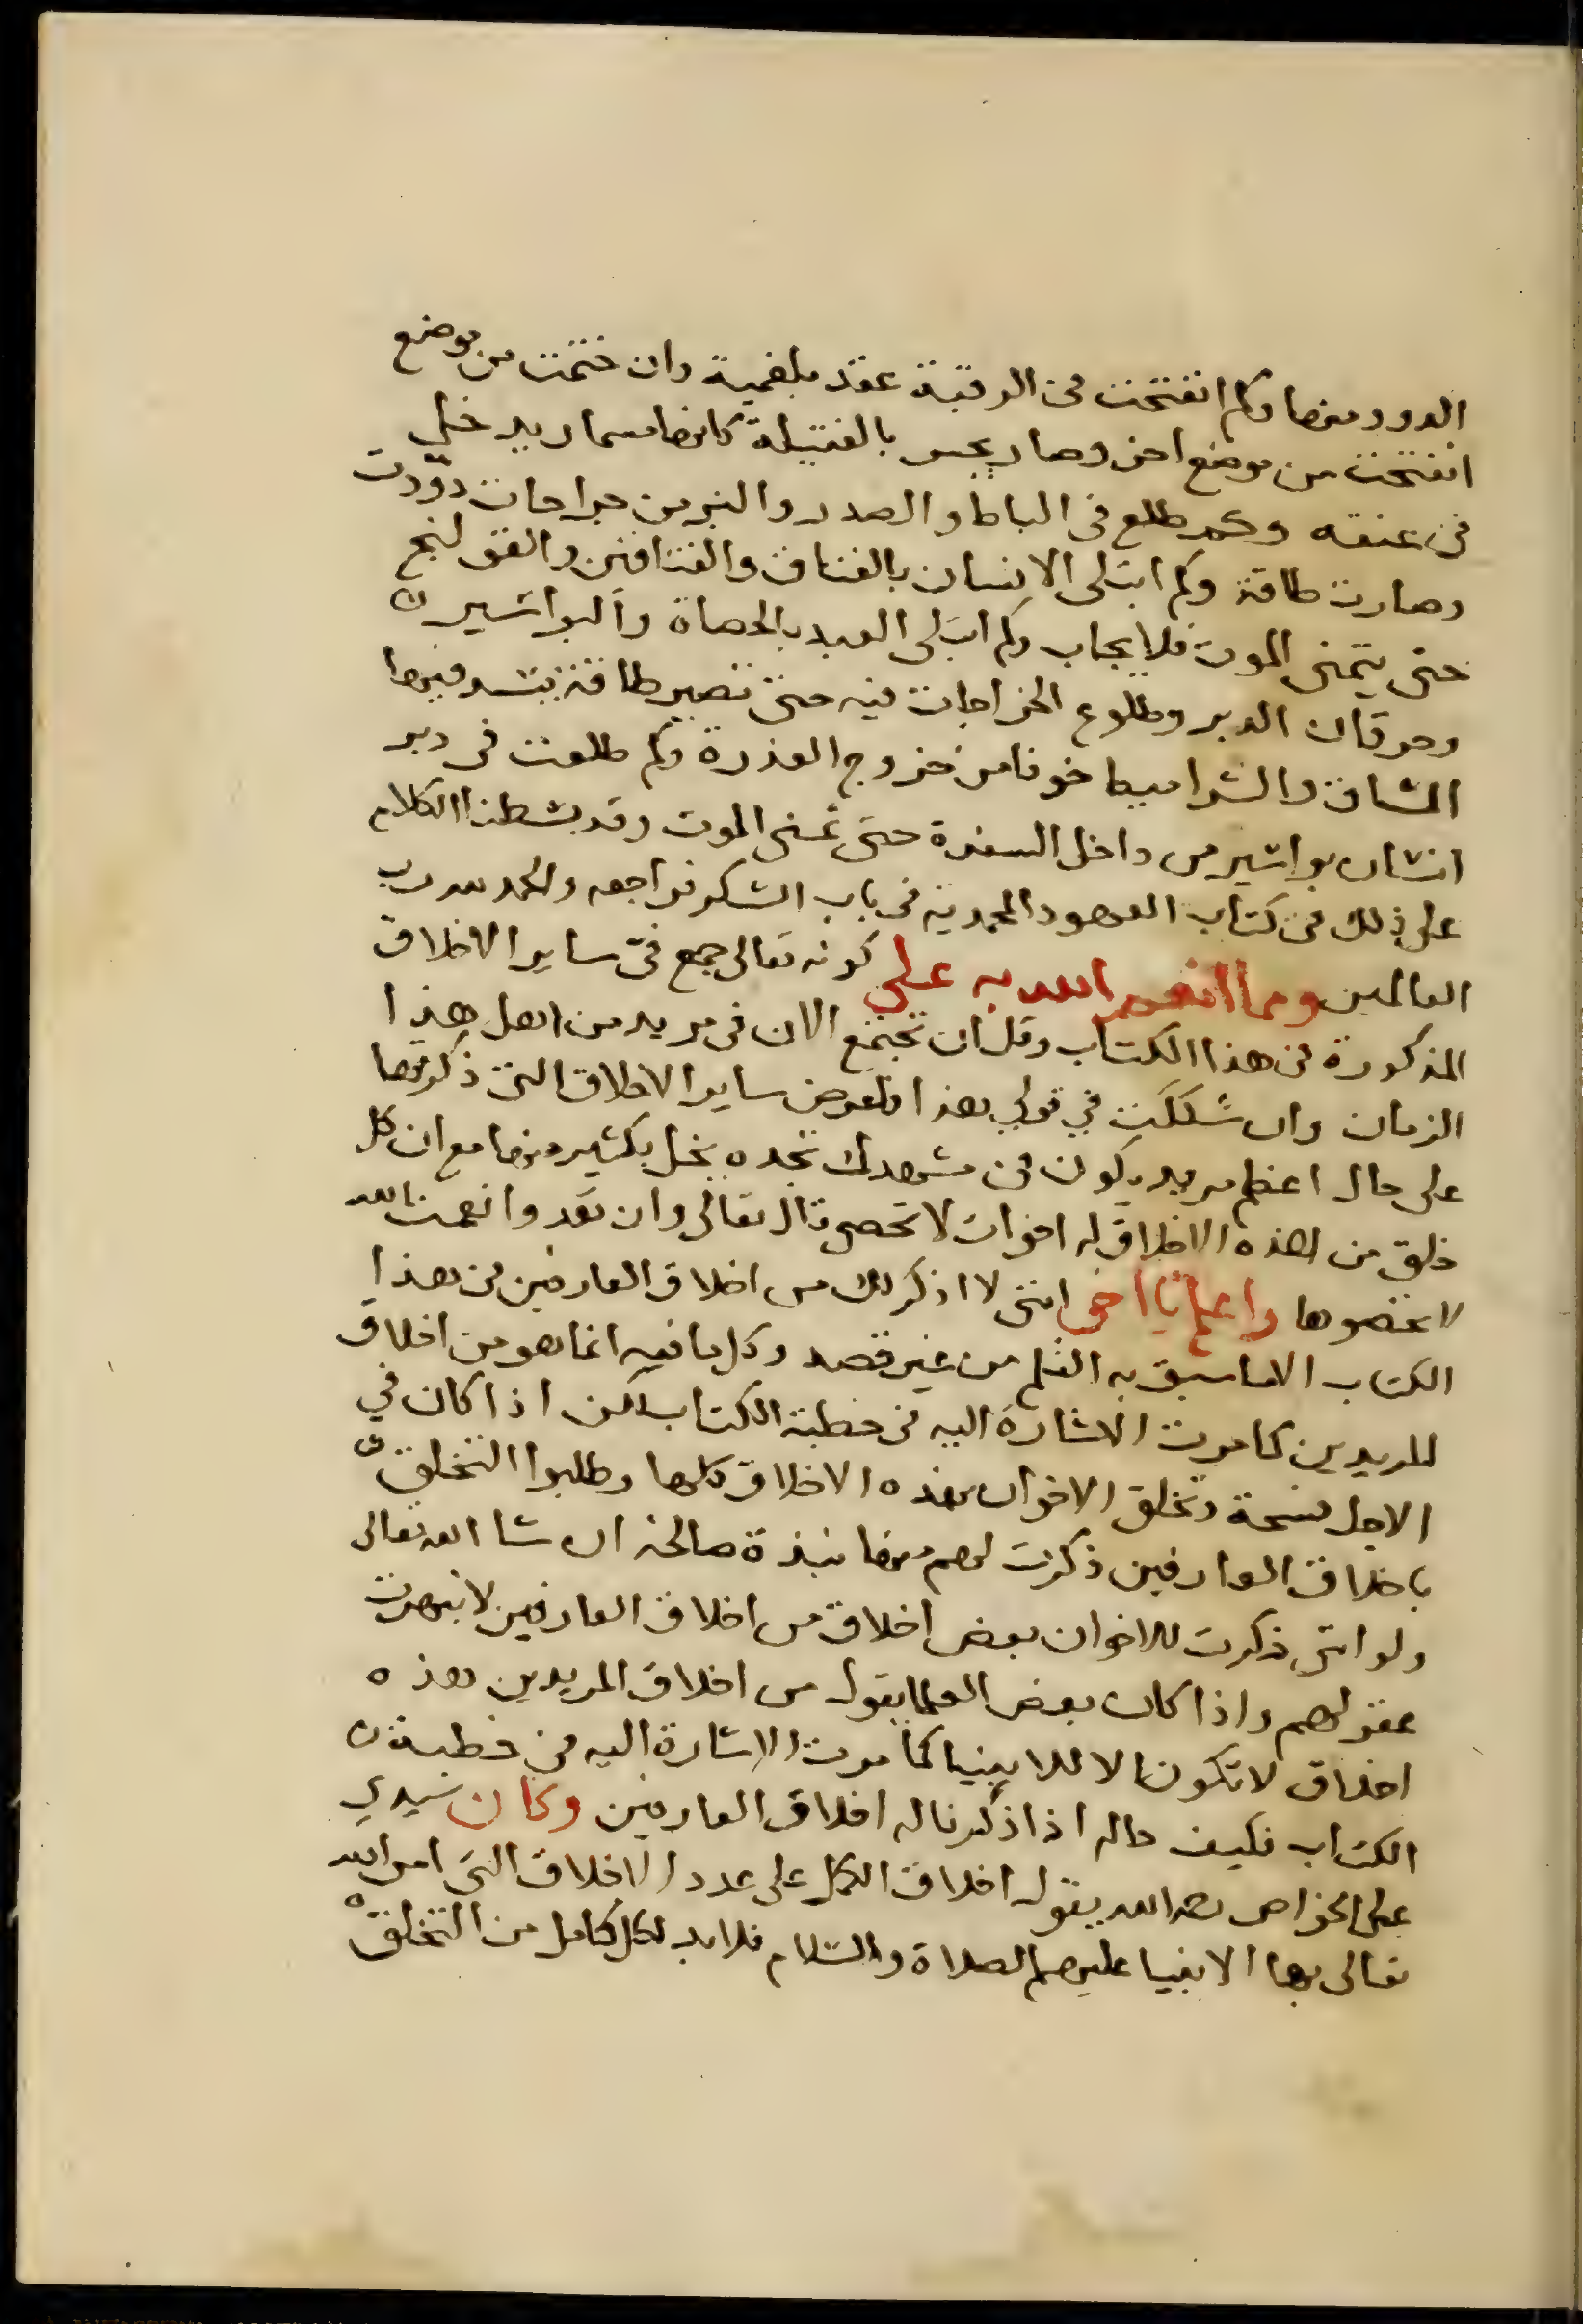 الدود منها وكم انفتحت في الرقبة عقد بلغمية وان ختمت من موضع
انفتحت من موضع اخر وصار يحس بالفتيلة كانها مسمار يدخل
في عنقه وكم طلع في الباط والصدر والبز من جراحات دودت
وصارت طاقة وكم ابتلى الانسان بالفتاق والفتافتين والقولنج
حتى يتمنى الموت فلا يجاب وكم ابتلى العبد بالحصاة والبواسير
وحرقان الدبر وطلوع الخراجات فيه حتى تصير طاقة يشد فيها
المشاق والشراميط خوفا من خروج العذرة وكم طلعت في دبر
انسان بواسير من داخل السفرة حتى تمنى الموت وقد بسطنا الكلام
على ذلك في كتاب العهود المحمدية في باب الشكر فراجعه والحمد لله رب
العالمين ومما انعم الله به علي كونه تعالى جمع في ساير الاخلاق
المذكورة في هذا الكتاب وقل ان تجتمع الان في مريد من اهل هذا
الزمان وان شككت في قولي هذا فاعرض ساير الاخلاق التي ذكرتها
على حال اعظم مريد يكون في مشهدك تجده يخل بكثير منها مع ان كل
خلق من هذه الاخلاق له اخوات لا تحصى قال تعالى وان تعدوا نعمت الله
لا تحصوها واعلم يا اخي انني لا اذكر لك من اخلاق العارفين في هذا
الكتاب الا ما سبق به القلم من غير قصد وكل ما فيه انما هو من اخلاق
المريدين كما مرت الاشارة اليه في خطبة الكتاب لكن اذا كان في
الاجل فسحة وتخلق الاخوان بهذه الاخلاق كلها وطلبوا التخلق
باخلاق العارفين ذكرت لهم منها نبذة صالحة ان شا الله تعالى
ولو انني ذكرت للاخوان بعض اخلاق من اخلاق العارفين لانبهرت
عقولهم واذا كان بعض العلما يقول من اخلاق المريدين هذه
اخلاق لا تكون الا للانبيا كما مرت الاشارة اليه في خطبة
الكتاب فكيف حاله اذا ذكرنا له اخلاق العارفين وكان سيدي
علي الخواص رحمه الله يقول اخلاق الكمل على عدد الاخلاق التي امر الله
تعالى بها الانبيا عليهم الصلاة والسلام فلا بد لكل كامل من التخلق